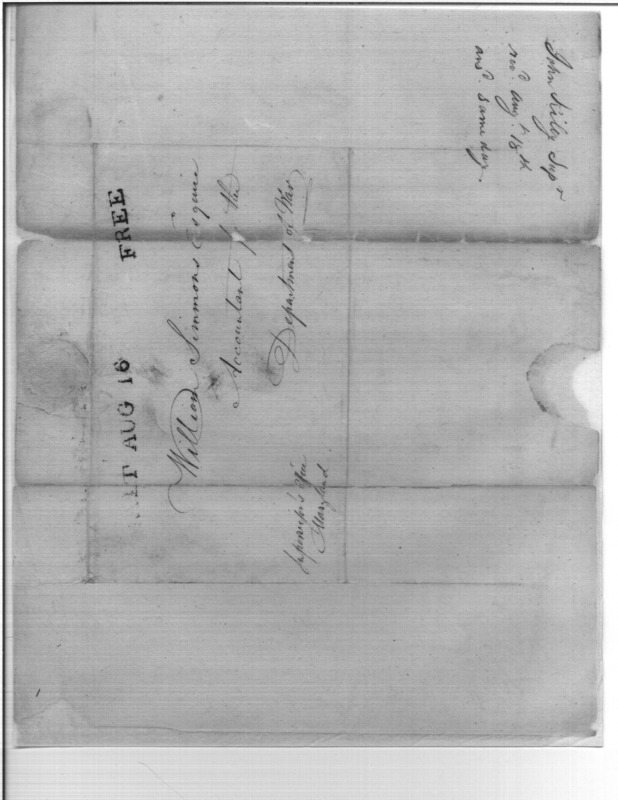 FREE
AUG 16
William Simmons Esquire
Accountant of the
Department of War
Supervisor's Office
Maryland.
John Kilty Supr
recd. Augt. 18th
ansd. same day.